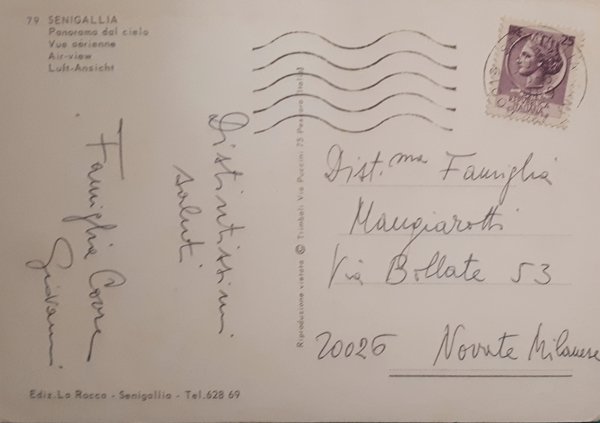 79 SENIGALLIA
Panorama dal cielo
Vue aerienne
Air-view
Luft-Ansicht
25
Distintissimi
saluti
Famiglia
Giovanni
Riproduzione vietata © Trimboli Via Puccini 75 Pesaro (Italia)
Dist.ma Famiglia
Mangiarotti
Via Bollate 53
20026 Novate Milanese
Ediz. La Rocca - Senigallia - Tel. 628 69